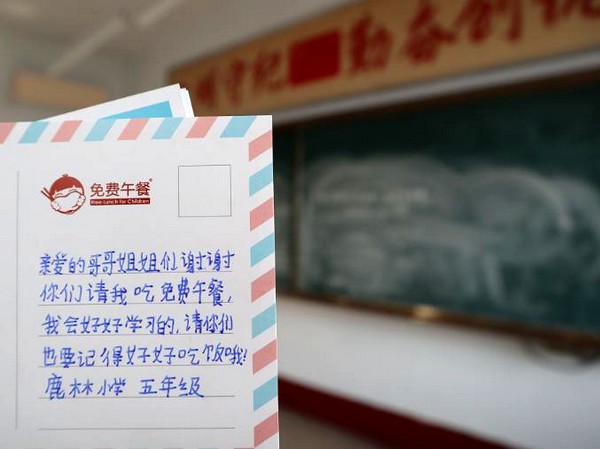 明守纪
勤奋创
免费午餐
Free Lunch for Children
亲爱的哥哥姐姐们谢谢
你们请我吃免费午餐,
我会好好学习的,请你们
也要记得好好吃饭哦!
鹿林小学 五年级